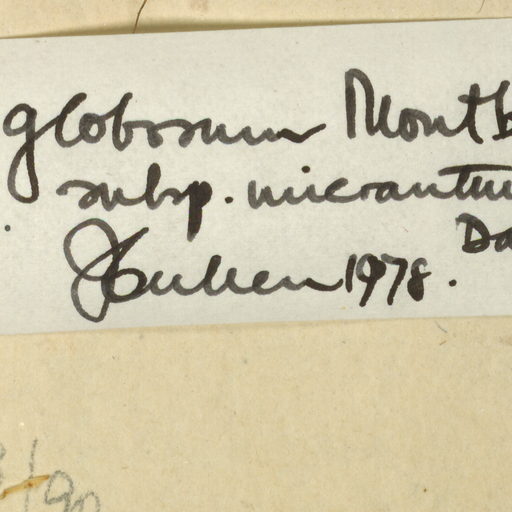 globosum Montb
subsp. micrantu
Da
J Cullen 1978.
/90